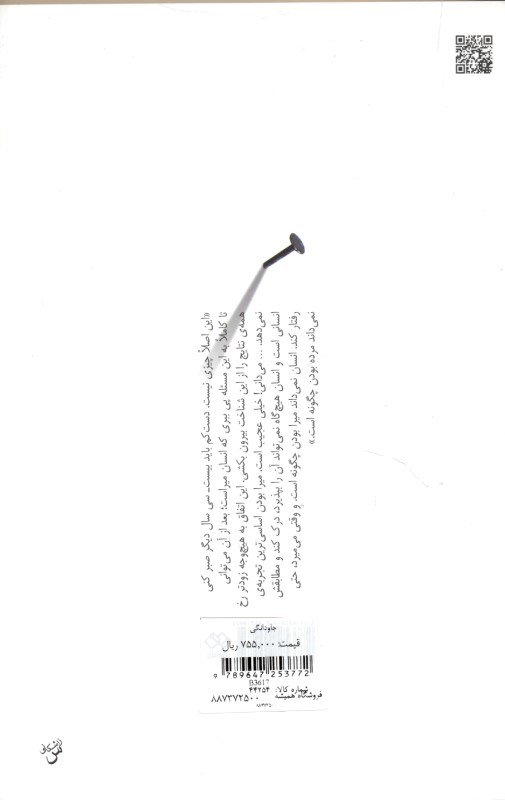 «این اصلاً چیزی نیست. دست‌کم باید بیست‌ـ سی سال دیگر صبر کنی
تا کاملاً به این مسئله پی ببری که انسان میراست؛ بعد از آن می‌توانی
همه‌ی نتایج را از این شناخت بیرون بکشی. این اتفاق به هیچ‌وجه زودتر رخ
نمی‌دهد. ... می‌دانی! خیلی عجیب است. میرا بودن اساسی‌ترین تجربه‌ی
انسانی است و انسان هیچ‌گاه نمی‌تواند آن را بپذیرد، درک کند و مطابقش
رفتار کند. انسان نمی‌داند میرا بودن چگونه است. و وقتی می‌میرد، حتی
نمی‌داند مرده بودن چگونه است.»
جاودانگی
قیمت: ۷۵۵,۰۰۰ ریال
9 789647 253772
B3617
شماره کالا: ۴۴۲۵۴
فروشگاه همیشه ۸۸۷۳۷۲۵۰۰